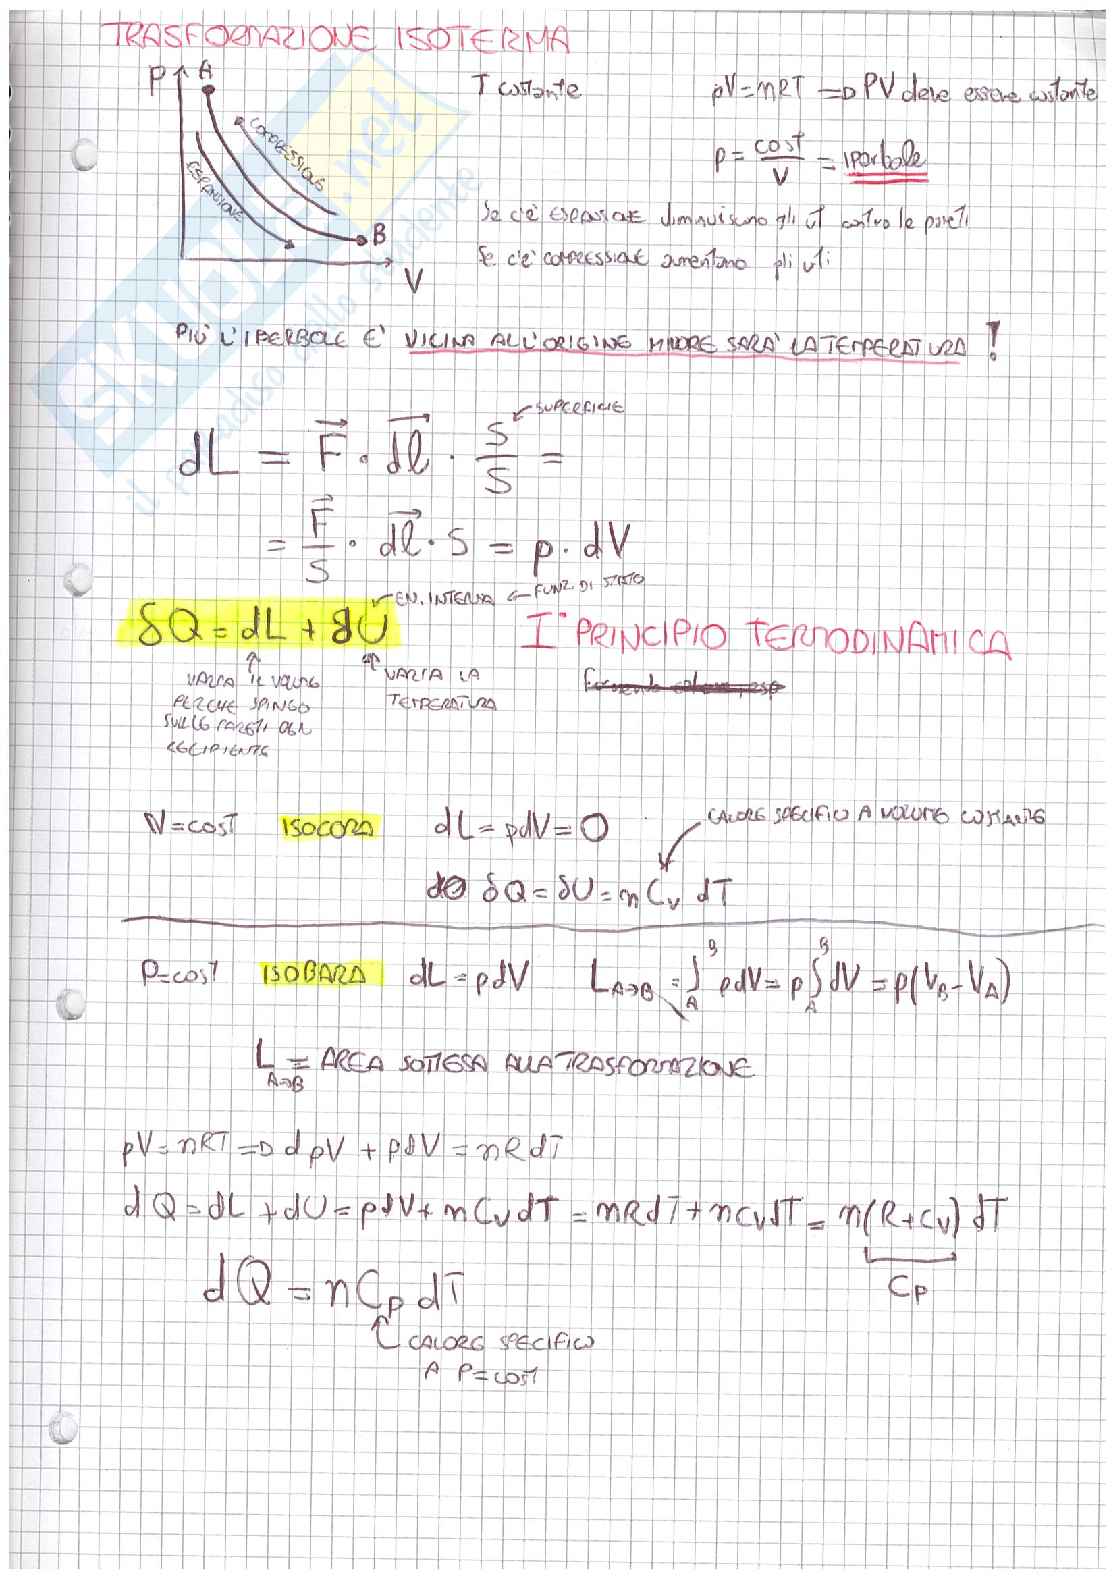 TRASFORMAZIONE ISOTERMA
P A
COMPRESSIONE
ESPANSIONE
B
V
T costante
pV = nRT => PV deve essere costante
p = cost/V = iperbole
Se c'è ESPANSIONE diminuiscono gli urti contro le pareti
Se c'è COMPRESSIONE aumentano gli urti
PIÙ L'IPERBOLE È VICINA ALL'ORIGINE MINORE SARÀ LA TEMPERATURA !
dL = F⃗ · dl⃗ · S/S =
SUPERFICIE
= F⃗/S · dl⃗ · S = p · dV
EN. INTERNA ← FUNZ. DI STATO
δQ = dL + dU
I° PRINCIPIO TERMODINAMICA
VARIA IL VOLUME
PERCHÉ SPINGO
SULLE PARETI DEL
RECIPIENTE
VARIA LA
TEMPERATURA
V = COST ISOCORA dL = pdV = 0
CALORE SPECIFICO A VOLUME COSTANTE
δQ = δU = nCv dT
P = COST ISOBARA dL = pdV L A→B = ∫_A^B pdV = p∫_A^B dV = p(V_B - V_A)
L A→B = AREA SOTTESA ALLA TRASFORMAZIONE
pV = nRT => dpV + pdV = nRdT
dQ = dL + dU = pdV + nCvdT = nRdT + nCvdT = n(R + Cv) dT
Cp
dQ = nCp dT
CALORE SPECIFICO
A P = COST
skuola.net
il paradiso dello studente